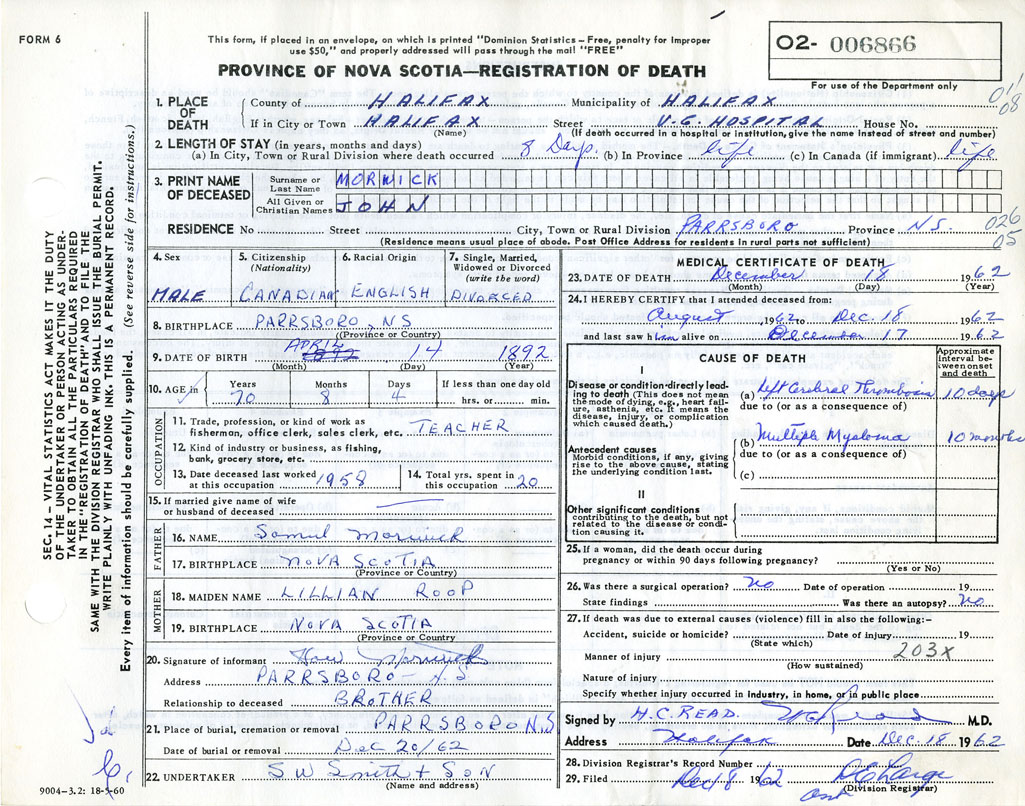 FORM 6
This form, if placed in an envelope, on which is printed "Dominion Statistics—Free, penalty for Improper
use $50," and properly addressed will pass through the mail "FREE"
PROVINCE OF NOVA SCOTIA—REGISTRATION OF DEATH
02- 006866
For use of the Department only
01/08
1. PLACE OF DEATH
County of HALIFAX Municipality of HALIFAX
If in City or Town HALIFAX Street V.G. HOSPITAL House No.
(Name) (If death occurred in a hospital or institution, give the name instead of street and number)
2. LENGTH OF STAY (in years, months and days)
(a) In City, Town or Rural Division where death occurred 8 Days. (b) In Province life (c) In Canada (if immigrant) life
3. PRINT NAME OF DECEASED
Surname or Last Name MORWICK
All Given or Christian Names JOHN
026
05
RESIDENCE No Street City, Town or Rural Division PARRSBORO Province NS.
(Residence means usual place of abode. Post Office Address for residents in rural parts not sufficient)
4. Sex
MALE
5. Citizenship
(Nationality)
CANADIAN
6. Racial Origin
ENGLISH
7. Single, Married,
Widowed or Divorced
(write the word)
DIVORCED
8. BIRTHPLACE PARRSBORO, NS
(Province or Country)
9. DATE OF BIRTH APRIL 1892 14 1892
(Month) (Day) (Year)
10. AGE in
Years Months Days If less than one day old
70 8 4 hrs. or min.
OCCUPATION
11. Trade, profession, or kind of work as
fisherman, office clerk, sales clerk, etc. TEACHER
12. Kind of industry or business, as fishing,
bank, grocery store, etc.
13. Date deceased last worked
at this occupation 1958
14. Total yrs. spent in
this occupation 20
15. If married give name of wife
or husband of deceased
FATHER
16. NAME Samul Morwick
17. BIRTHPLACE NOVA SCOTIA
(Province or Country)
MOTHER
18. MAIDEN NAME LILLIAN ROOP
19. BIRTHPLACE NOVA SCOTIA
(Province or Country
20. Signature of informant Morwick
Address PARRSBORO - NS
Relationship to deceased BROTHER
21. Place of burial, cremation or removal PARRSBORO N.S
Date of burial or removal Dec 20/62
22. UNDERTAKER S W Smith + Son
(Name and address)
MEDICAL CERTIFICATE OF DEATH
23. DATE OF DEATH December 18 1962
(Month) (Day) (Year)
24. I HEREBY CERTIFY that I attended deceased from:
August 1962 to Dec. 18 1962
and last saw him alive on December 17 1962
CAUSE OF DEATH
Approximate
interval be-
tween onset
and death
I
Disease or condition directly lead-
ing to death (This does not mean
the mode of dying, e.g., heart fail-
ure, asthenia, etc. It means the
disease, injury, or complication
which caused death.)
(a) Left Cerebral Thrombosis 10 days
due to (or as a consequence of)
(b) Multiple Myeloma 10 months
due to (or as a consequence of)
Antecedent causes
Morbid conditions, if any, giving
rise to the above cause, stating
the underlying condition last.
(c)
II
Other significant conditions
contributing to the death, but not
related to the disease or condi-
tion causing it.
25. If a woman, did the death occur during
pregnancy or within 90 days following pregnancy?
(Yes or No)
26. Was there a surgical operation? No Date of operation 19
State findings Was there an autopsy? No
27. If death was due to external causes (violence) fill in also the following:—
Accident, suicide or homicide? Date of injury 19
(State which)
Manner of injury 203X
(How sustained)
Nature of injury
Specify whether injury occurred in industry, in home, or in public place
Signed by H.C. READ. HCRead M.D.
Address Halifax Date Dec. 18 1962
28. Division Registrar's Record Number
29. Filed Dec 18 1962
(Division Registrar)
SEC. 14 – VITAL STATISTICS ACT MAKES IT THE DUTY
OF THE UNDERTAKER OR PERSON ACTING AS UNDER-
TAKER TO OBTAIN ALL THE PARTICULARS REQUIRED
IN THE "REGISTRATION OF DEATH" AND TO FILE THE
SAME WITH THE DIVISION REGISTRAR WHO SHALL ISSUE THE BURIAL PERMIT.
WRITE PLAINLY WITH UNFADING INK. THIS IS A PERMANENT RECORD.
Every item of information should be carefully supplied. (See reverse side for instructions.)
9004-3.2: 18-5-60